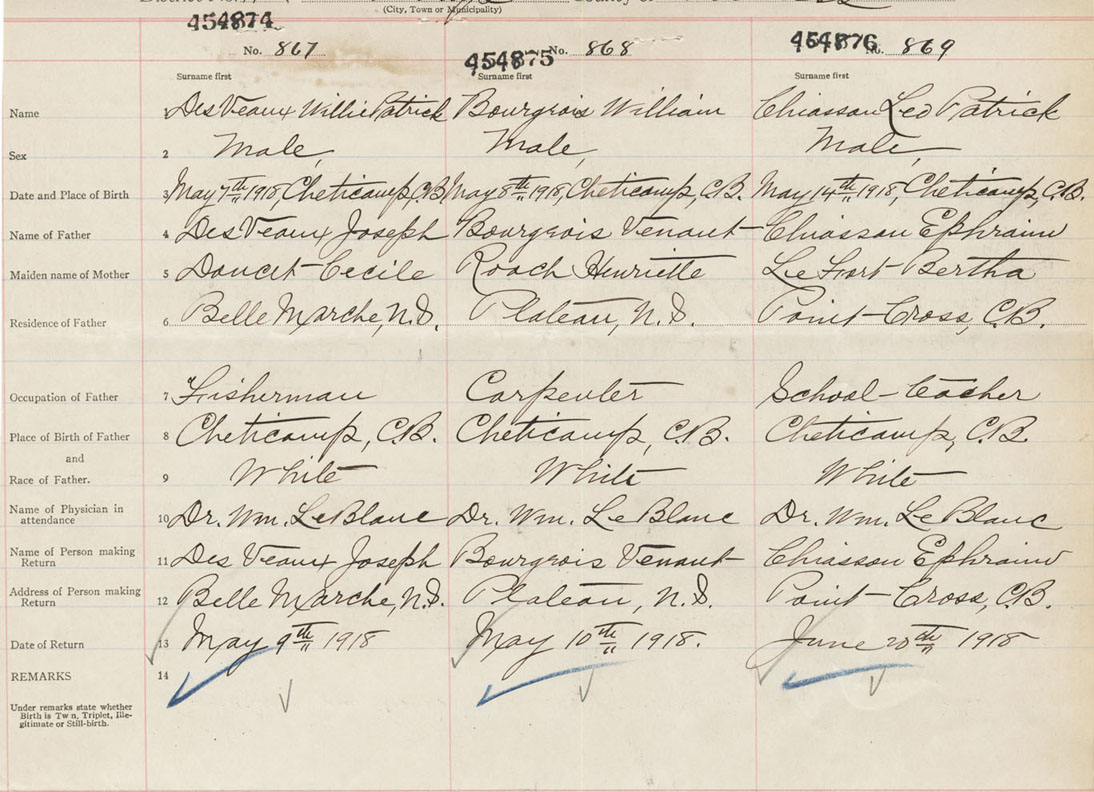 (City, Town or Municipality)
454874 454875 454876
No. 867 No. 868 No. 869
Surname first Surname first Surname first
Name 1 DesVeaux Willie Patrick Bourgeois William Chiasson Leo Patrick
Sex 2 Male, Male, Male,
Date and Place of Birth 3 May 7th 1918, Cheticamp, C.B. May 8th 1918, Cheticamp, C.B. May 14th 1918, Cheticamp, C.B.
Name of Father 4 DesVeaux Joseph Bourgeois Venant Chiasson Ephraim
Maiden name of Mother 5 Doucet Cecile Roach Henriette LeFort Bertha
Residence of Father 6 Belle Marche, N.S. Plateau, N.S. Point-Cross, C.B.
Occupation of Father 7 Fisherman Carpenter School-teacher
Place of Birth of Father 8 Cheticamp, C.B. Cheticamp, C.B. Cheticamp, C.B.
and
Race of Father. 9 White White White
Name of Physician in attendance 10 Dr. Wm. LeBlanc Dr. Wm. LeBlanc Dr. Wm. LeBlanc
Name of Person making Return 11 Des Veaux Joseph Bourgeois Venant Chiasson Ephraim
Address of Person making Return 12 Belle Marche, N.S. Plateau, N.S. Point-Cross, C.B.
Date of Return 13 May 9th 1918 May 10th 1918. June 20th 1918
REMARKS 14
Under remarks state whether
Birth is Tw n, Triplet, Ille-
gitimate or Still-birth.